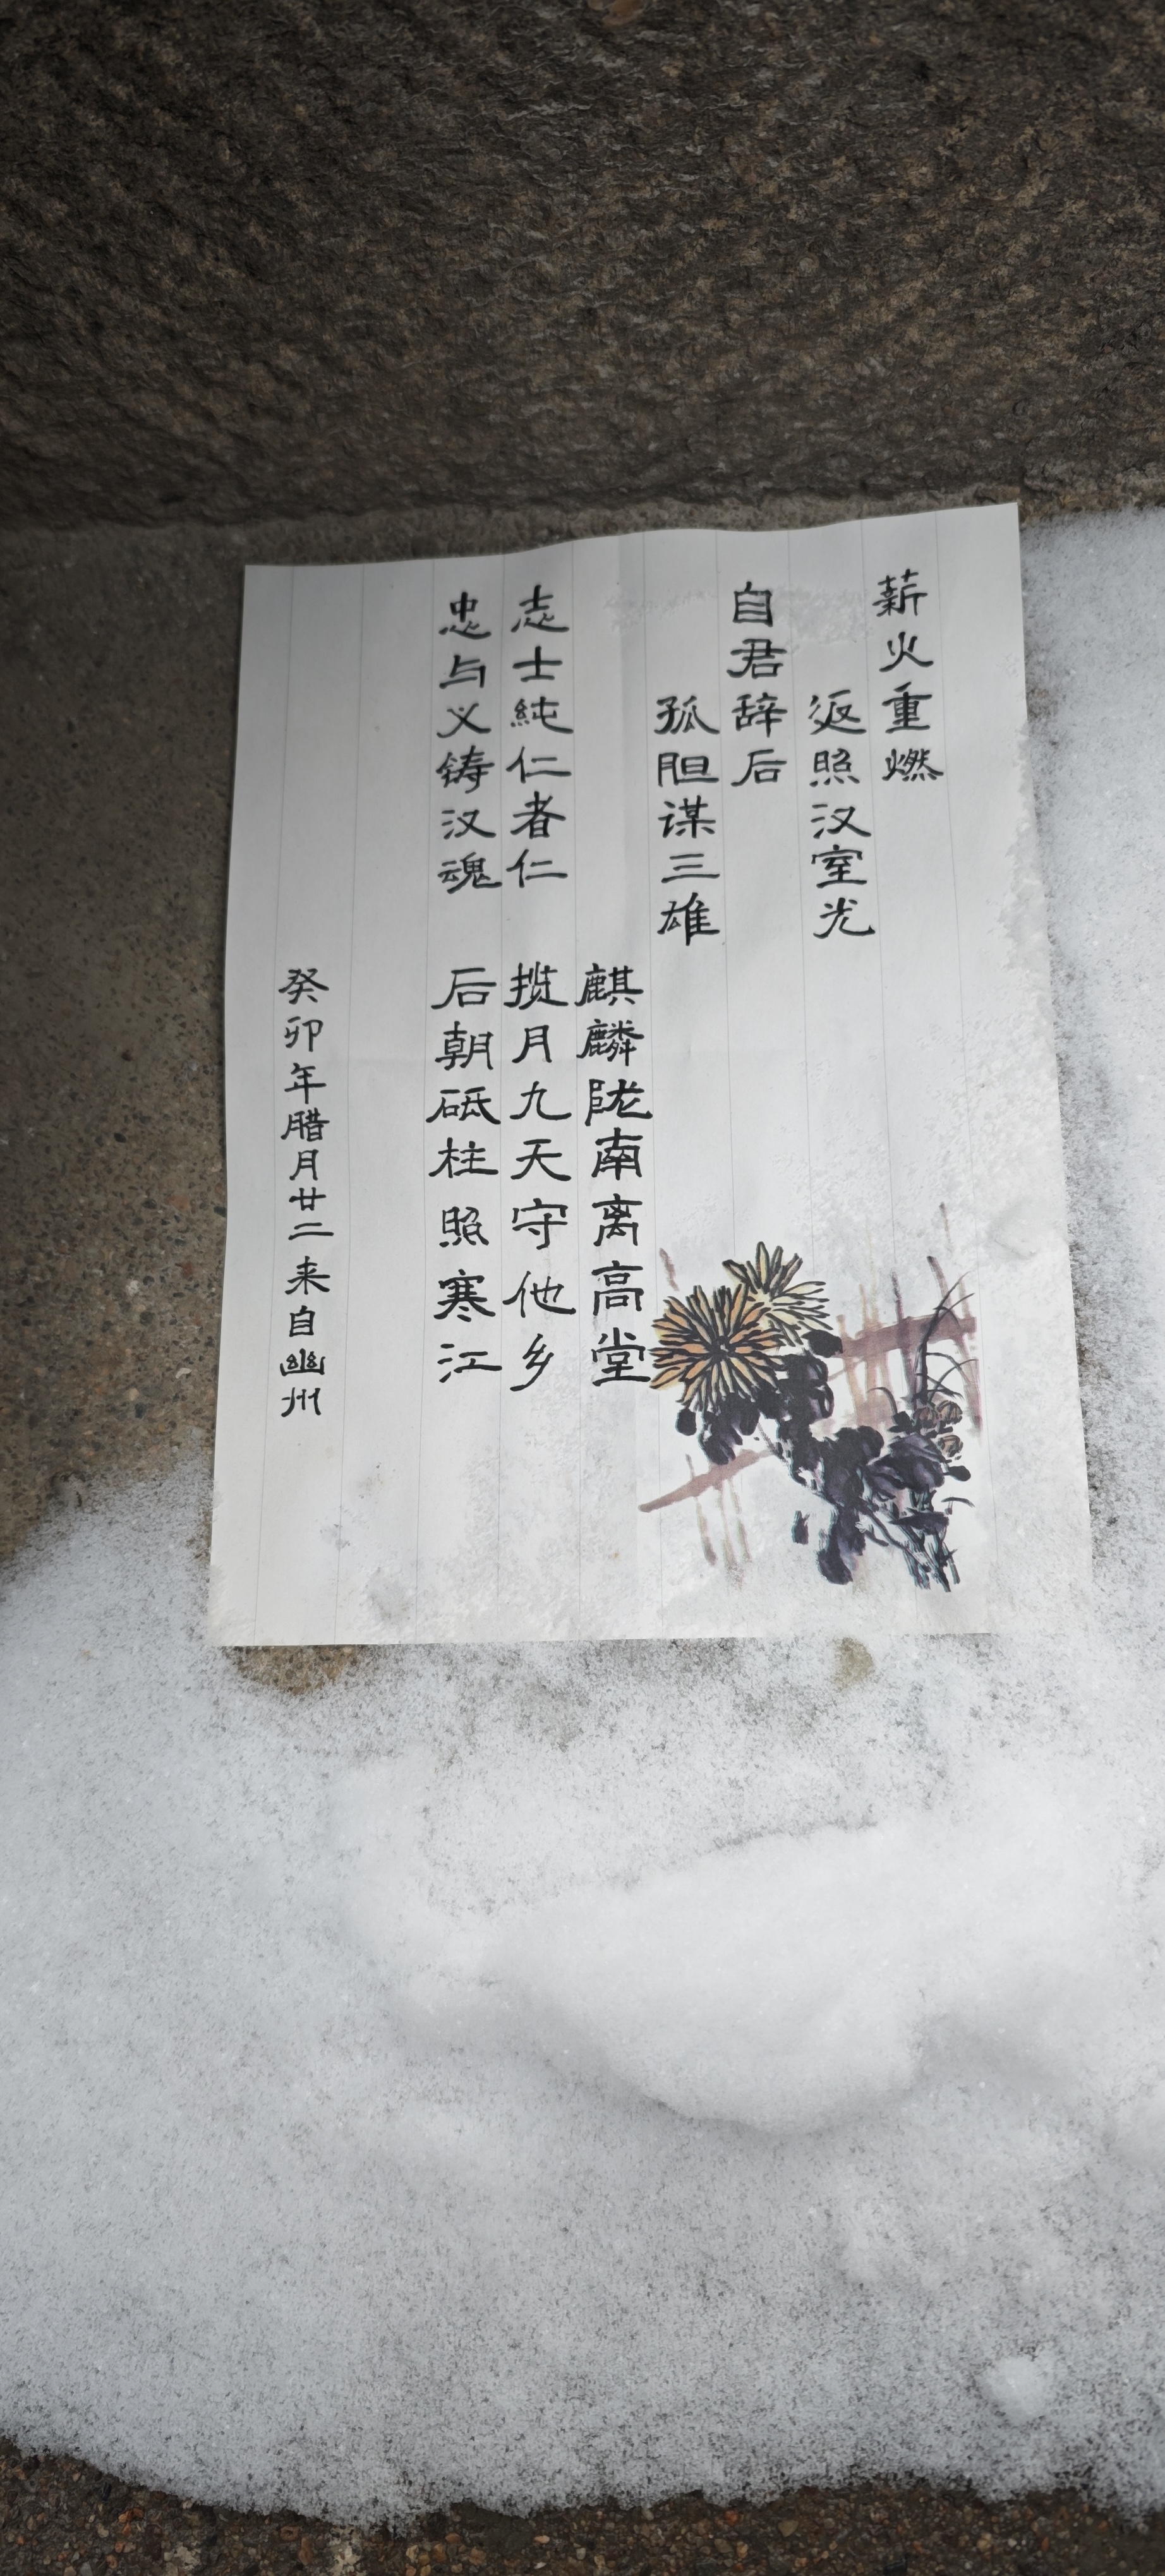 薪火重燃
返照汉室光
自君辞后
孤胆谋三雄
麒麟陇南离高堂
志士純仁者仁
揽月九天守他乡
忠与义铸汉魂
后朝砥柱照寒江
癸卯年腊月廿二来自幽州